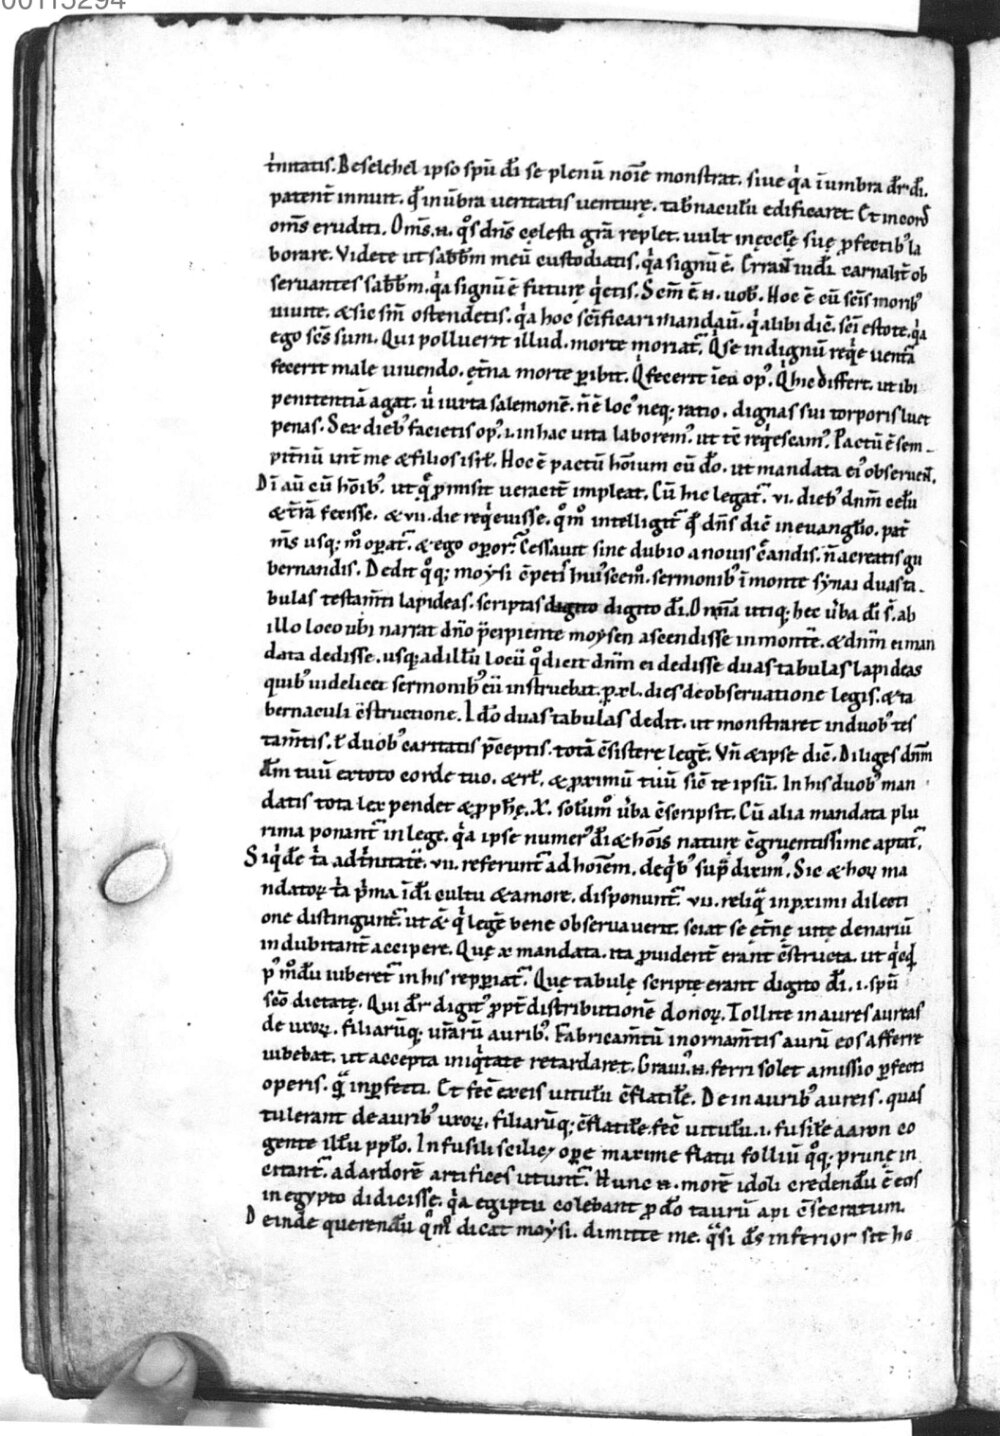 00115294
t̄nitatis. Beselehel ipso spū dī se plenū noīe monstrat. siue qͥa īumbra dr̄ dī.
patent̄ innuit. qđ inūbra ueritatis venturę. tab̄naculū edificaret. Et in cord
om̄s eruditi. Om̄s .n. qͦs dn̄s cęlesti gr̄a replet. uult in ęcclę suę ꝓfectibꝰ la
borare. Videte ut sab̄b̄m meū custodiatis. qͥa signū ē. Errant̄ iudī carnalit̄ ob
seruantes sab̄b̄m. qͥa signū ē futurę qͥetis. Sc̄m ē .n. uob̄. Hoc ē cū sc̄is moribꝰ
uiuite. & sic sm̄ ostendetis. qͥa hoc sc̄ificari mandaū. qͥ alibi dic̄. sc̄i estote. qͥa
ego sc̄s sum. Qui polluerit illud. morte moriat᷑. Qͥ se indignū reqͥe uentā
fecerit male uiuendo. ęt̄na morte ꝑibit. Qͥ fecerit īeo opꝰ. Qͥ hic differt. ut ibi
penitentiā agat. ut̄ iuxta salemonē. n̄ ē locꝰ neqꝫ ratio. dignas sui torporis luet
penas. Sex diebꝰ facietis opꝰ .i. in hac uita laboremꝰ. ut tē reqͥescamꝰ. Pactū ē sem-
pit̄nū int̄ me & filios isrł. Hoc ē pactū hōium cū dō. ut mandata eiꝰ obseruen̄t.
Dī aū cū hōibꝰ. ut qđ ꝓmisit ueracit̄ impleat. Cū hic legat᷑ .vi. diebꝰ dnm̄ celū
& t̄rā fecisse. & .vii. die reqͥeuisse. qͦmͦ intelligit᷑ qđ dn̄s dic̄ in euanglio. pat̄
m̄s usqꝫ mͦ oꝑat᷑. & ego oꝑor. Cessauit sine dubio a nouis c̄andis. n̄ a creatis gu
bernandis. Dedit qͦqꝫ moysi c̄pet̄ı huiꝰsc̄emͦ. sermonibꝰ ī monte synai duas ta-
bulas testam̄ti lapideas. scriptas digito digito dī. Omīa utiqꝫ hec ūba dī s̄. ab
illo loco ubi narrat dn̄o p̄cipiente moysen ascendisse in monte. & dnm̄ ei man
data dedisse. usqꝫ ad illū locū qͦ dicit dnm̄ ei dedisse duas tabulas lapideas
quibꝰ uidelicet sermonibꝰ eū instruebat. ꝑ .xl. dies de obseruatione legis. & ta
bernaculi c̄structione. Idō duas tabulas dedit. ut monstraret in duobꝰ tes
tam̄tis. ł duobꝰ caritatis p̄ceptis. totā c̄sistere legē. Vn̄ & ipse dic̄. Diliges dnm̄
dm̄ tuū ex toto corde tuo. & rł. & ꝓximū tuū sic̄ te ipsū. In his duobꝰ man
datis tota lex pendet & ꝓphę. X. solum̄ ūba c̄scripsit. Cū alia mandata plu
rima ponant᷑ in lege. qͥa ipse numerꝰ dī & hōis naturę c̄gruentissime aptat᷑.
Siqͥdē tͥa ad tͥnitatē .vii. referunt᷑ ad hoīem. de qͥbꝰ sup̄ diximꝰ. Sic & hoꝝ man
datoꝝ tͥa pͥma ī dī cultu & amore. disponunt᷑ .vii. reliqͣ in ꝓximi dilecti
one distingunt᷑. ut & qͥ legē bene obseruauerit. sciat se ęt̄nę uitę denariū
indubitant̄ accipere. Quę x mandata. ita ꝓuident̄ erant c̄structa. ut qͥcqͥd
pꝰmodū iuberet᷑ in his repꝑiat᷑. Quę tabulę scriptę erant digito dī .i. spū
scō dictatę. Qui dr̄ digitꝰ ꝓpt̄ distributionē donoꝝ. Tollite in aures aureas
de uxoꝝ. filiarūqꝫ ur̄arū auribꝰ. Fabricam̄tū in ornam̄tis aurū eos afferre
iubebat. ut accepta iniqͥtate retardaret. Grauiꝰ .n. ferri solet amissio ꝑfecti
operis. qͣ inꝑfecti. Et fec̄ ex eis uitulū c̄flatilē. De inauribꝰ aureis. quas
tulerant de auribꝰ uxoꝝ. filiarūqꝫ c̄flatilē. fec̄ uitulū .i. fusilē aaron co
gente illū pplo. In fusili scilic̄ opere maxime flatu folliū qͦqꝫ prunę in
citant᷑. ad ardorē artifices utunt᷑. Hunc .n. morē idoli credendū ē eos
in egypto didicisse. qͥa egiptu colebant ꝓ dō taurū api c̄secratum.
Deinde querendū qͦmͦ dicat moysi. dimitte me. qͣsi ds̄ inferior sit ho